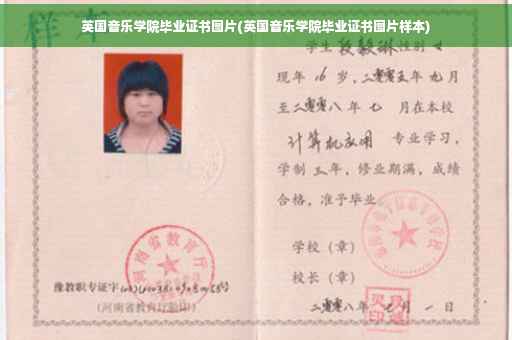 英国音乐学院毕业证书图片(英国音乐学院毕业证书图片样本)
样本
学生 段毅琳 性别 女
现年 16 岁,二零零五年 九月
至二零零八年 七 月在本校
计算机应用 专业学习,
学制 三年,修业期满,成绩
合格,准予毕业
学校(章)
校长(章)
二零零八年 七 月 一 日
河南省教育厅
豫教职专证字
(河南省教育厅验印)